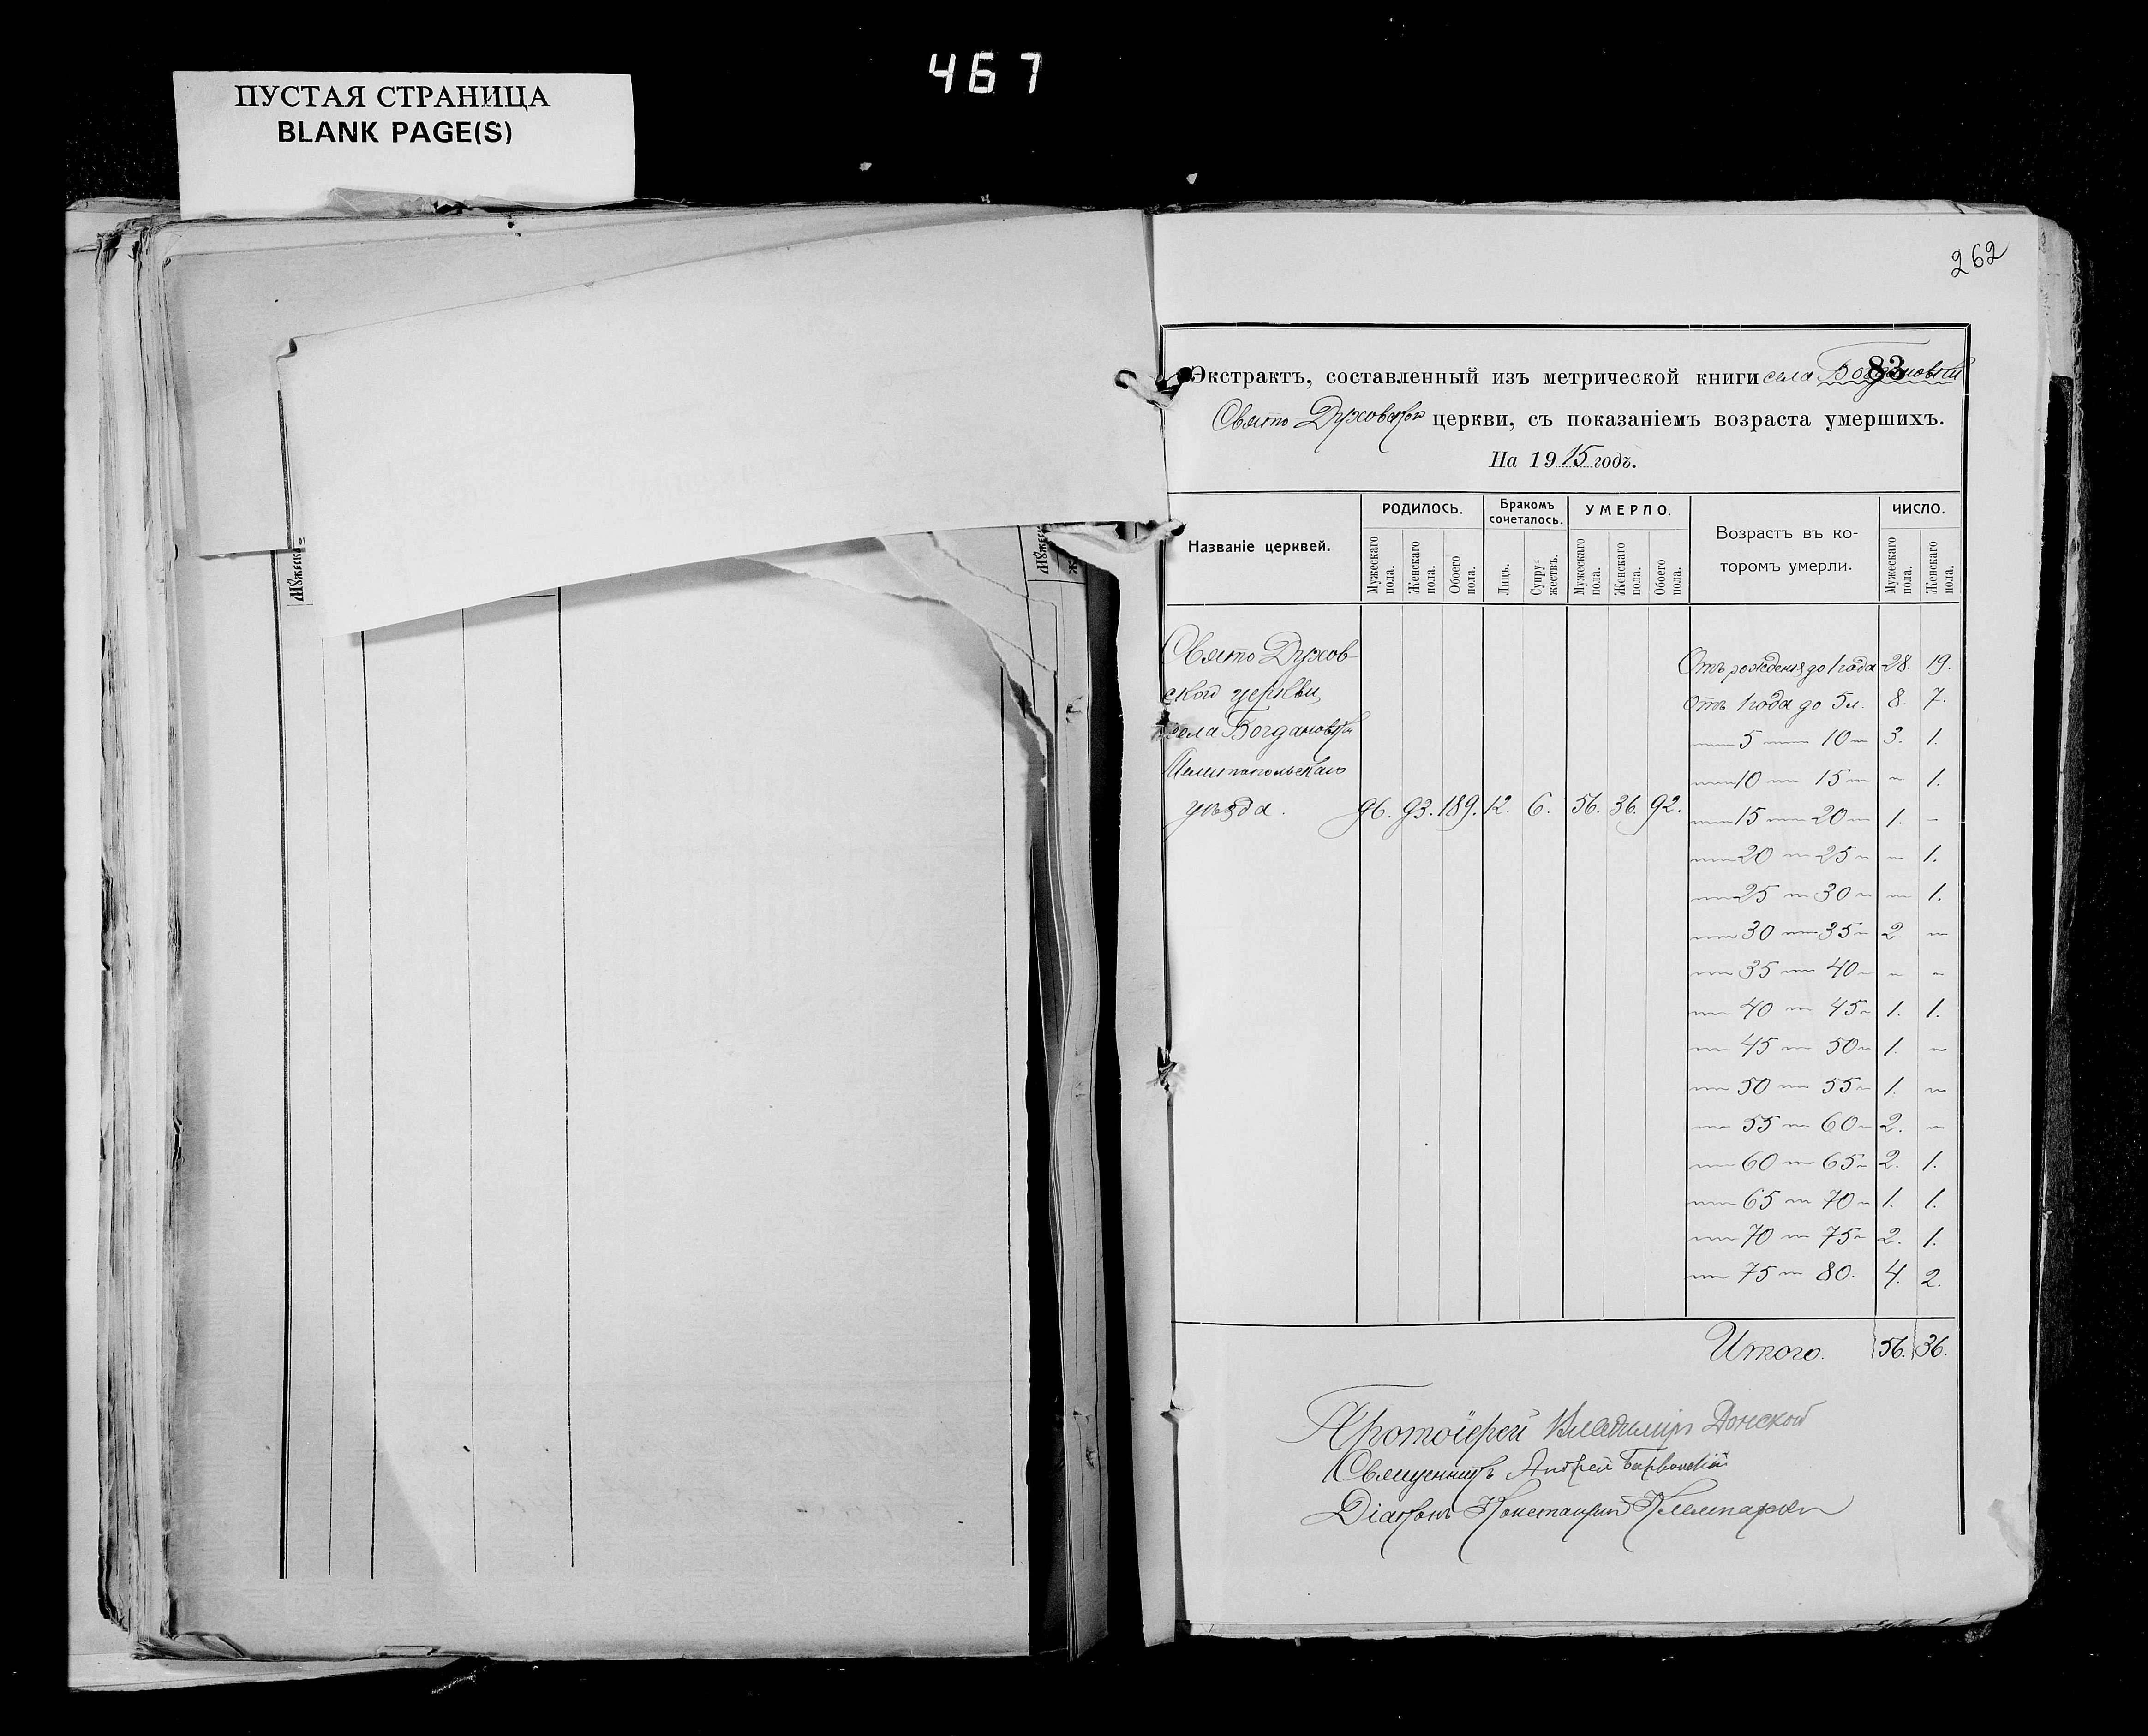 467
ПУСТАЯ СТРАНИЦА
BLANK PAGE(S)
262
83
Экстрактъ, составленный изъ метрической книги села Богдановки
Свято Духовской церкви, съ показаніемъ возраста умершихъ.
На 1915 годъ.
Названіе церквей. РОДИЛОСЬ. Бракомъ сочеталось. УМЕРЛО. Возрастъ въ которомъ умерли. ЧИСЛО.
Мужескаго пола. Женскаго пола. Обоего пола. Лицъ. Супружествъ. Мужескаго пола. Женскаго пола. Обоего пола. Мужескаго пола. Женскаго пола.
Свято Духов-
ской церкви,
села Богдановки
Мелитопольскаго
уѣзда. 96. 93. 189. 12. 6. 56. 36. 92.
Отъ рожденія до 1 года 28. 19.
Отъ 1 года до 5 л. 8. 7.
— 5 — 10 — 3. 1.
— 10 — 15 — — 1.
— 15 — 20 — 1. —
— 20 — 25 — — 1.
— 25 — 30 — — 1.
— 30 — 35 — 2. —
— 35 — 40 — — —
— 40 — 45 — 1. 1.
— 45 — 50 — 1. —
— 50 — 55 — 1. —
— 55 — 60 — 2. —
— 60 — 65 — 2. 1.
— 65 — 70 — 1. 1.
— 70 — 75 — 2. 1.
— 75 — 80. 4. 2.
Итого. 56. 36.
Протоіерей Владиміръ Донской
Священникъ Андрей
Діаконъ Константинъ